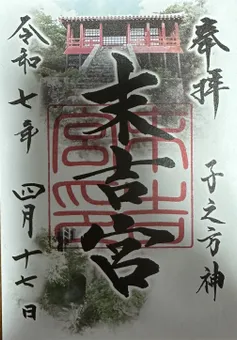 奉拝
子之方神
末吉宮
令和七年 四月十七日